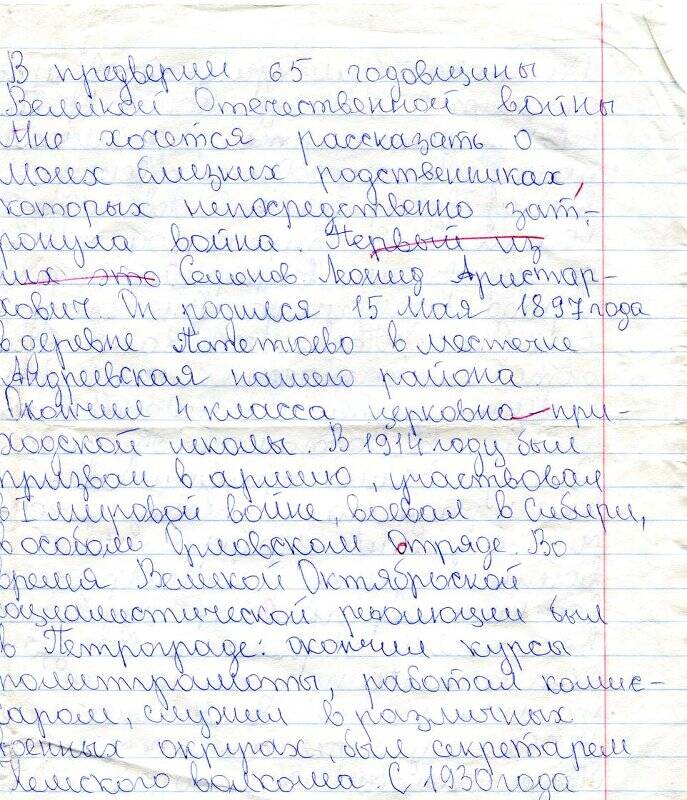 В предверии 65 годовщины
Великой Отечественной войны
Мне хочется рассказать о
моих близких родственниках,
которых непосредственно зат-
ронула война. Первый из
них это Самонов Леонид Аристар-
хович. Он родился 15 мая 1897 года
в деревне в местечке
Андреевская нашего района.
Окончил 4 класса церковно-при-
ходской школы. В 1914 году был
призван в армию, участвовал
в I мировой войне, воевал в Сибири,
в особом Орловском Отряде. Во
время Великой Октябрьской
социалистической революции был
в Петрограде: окончил курсы
политграмоты, работал комис-
саром, служил в различных
военных округах, был секретарем
волкома. С 1930 года